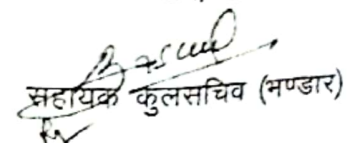 सहायक कुलसचिव (भण्डार)